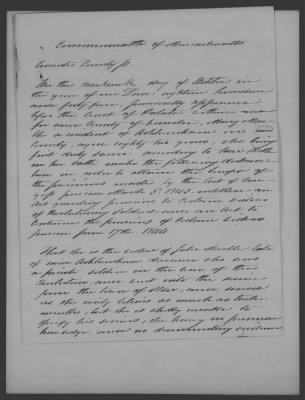 Commonwealth of Massachusetts
Worcester County ss
On this day of October in
the year of our Lord eighteen hundred
and forty four, personally appeared
before the Court of Probate within and
for said County of Worcester, Mary
a resident of Ashburnham in said
County, aged eighty two years, who being
first duly sworn according to law, doth
on her oath make the following declara-
tion in order to obtain the benefit of
the provision made by the Act of Con-
gress passed March 3d 1843, entitled an
Act granting pensions to certain widows
of Revolutionary soldiers and an act to
continue the pensions of certain widows
passed June 17th 1844
That she is the widow of John late
of said Ashburnham deceased who was
a private soldier in the war of the
Revolution and
from the town of and served
as she verily believes as much as twelve
months, but she is wholly unable to
specify his service, she having no personal
knowledge, and no documentary evidence